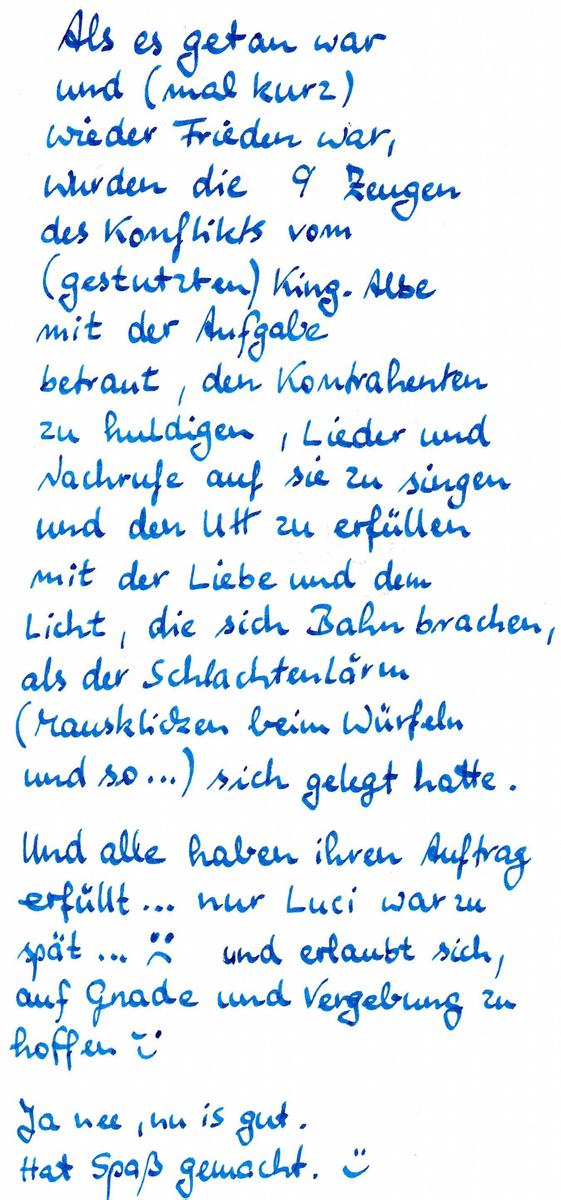 Als es getan war
und (mal kurz)
wieder Frieden war,
wurden die 9 Zeugen
des Konflikts vom
(gestutzten) King. Albe
mit der Aufgabe
betraut, den Kontrahenten
zu huldigen, Lieder und
Nachrufe auf sie zu singen
und den Utt zu erfüllen
mit der Liebe und dem
Licht, die sich Bahn brachen,
als der Schlachtenlärm
(Mausklicken beim Würfeln
und so...) sich gelegt hatte.
Und alle haben ihren Auftrag
erfüllt... nur Luci war zu
spät... :( und erlaubt sich,
auf Gnade und Vergebung zu
hoffen :)
Ja nee, nu is gut.
Hat Spaß gemacht. :)